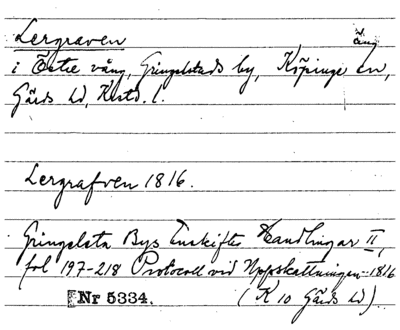 Lergraven äng
i Östre vång, Gringelstads by, Köpinge sn,
Gärds hd, Krstd. l.
Lergrafven 1816.
Gringelsta Bys Enskiftes Handlingar II,
fol 197-218 Protocoll vid Uppskattningen 1816
Nr 5334. (K 10 Gärds hd).